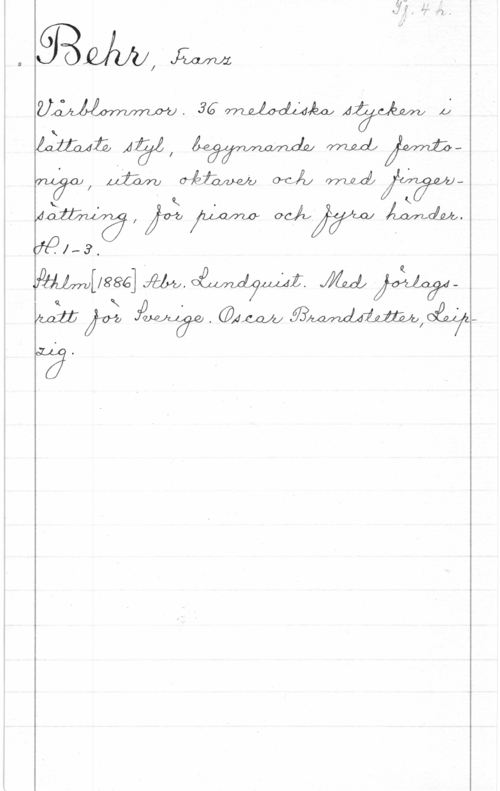 Yf. 4 h.
Behr, Franz
Vårblommor. 36 melodiska stycken i
lättaste styl, begynnande med femto-
niga, utan oktaver och med finger-
sättning, för piano och fyra händer.
H. 1-3.
Sthlm [1886] Abr. Lundquist. Med förlags-
rätt för Sverige. Oscar Brandstetter, Leip-
zig.